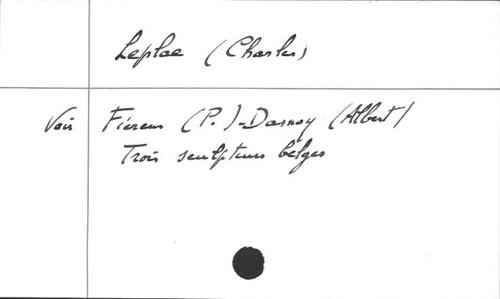 Leplae (Charles)
Voir Fierens (P.)-Dasnoy (Albert)
Trois sculpteurs belges